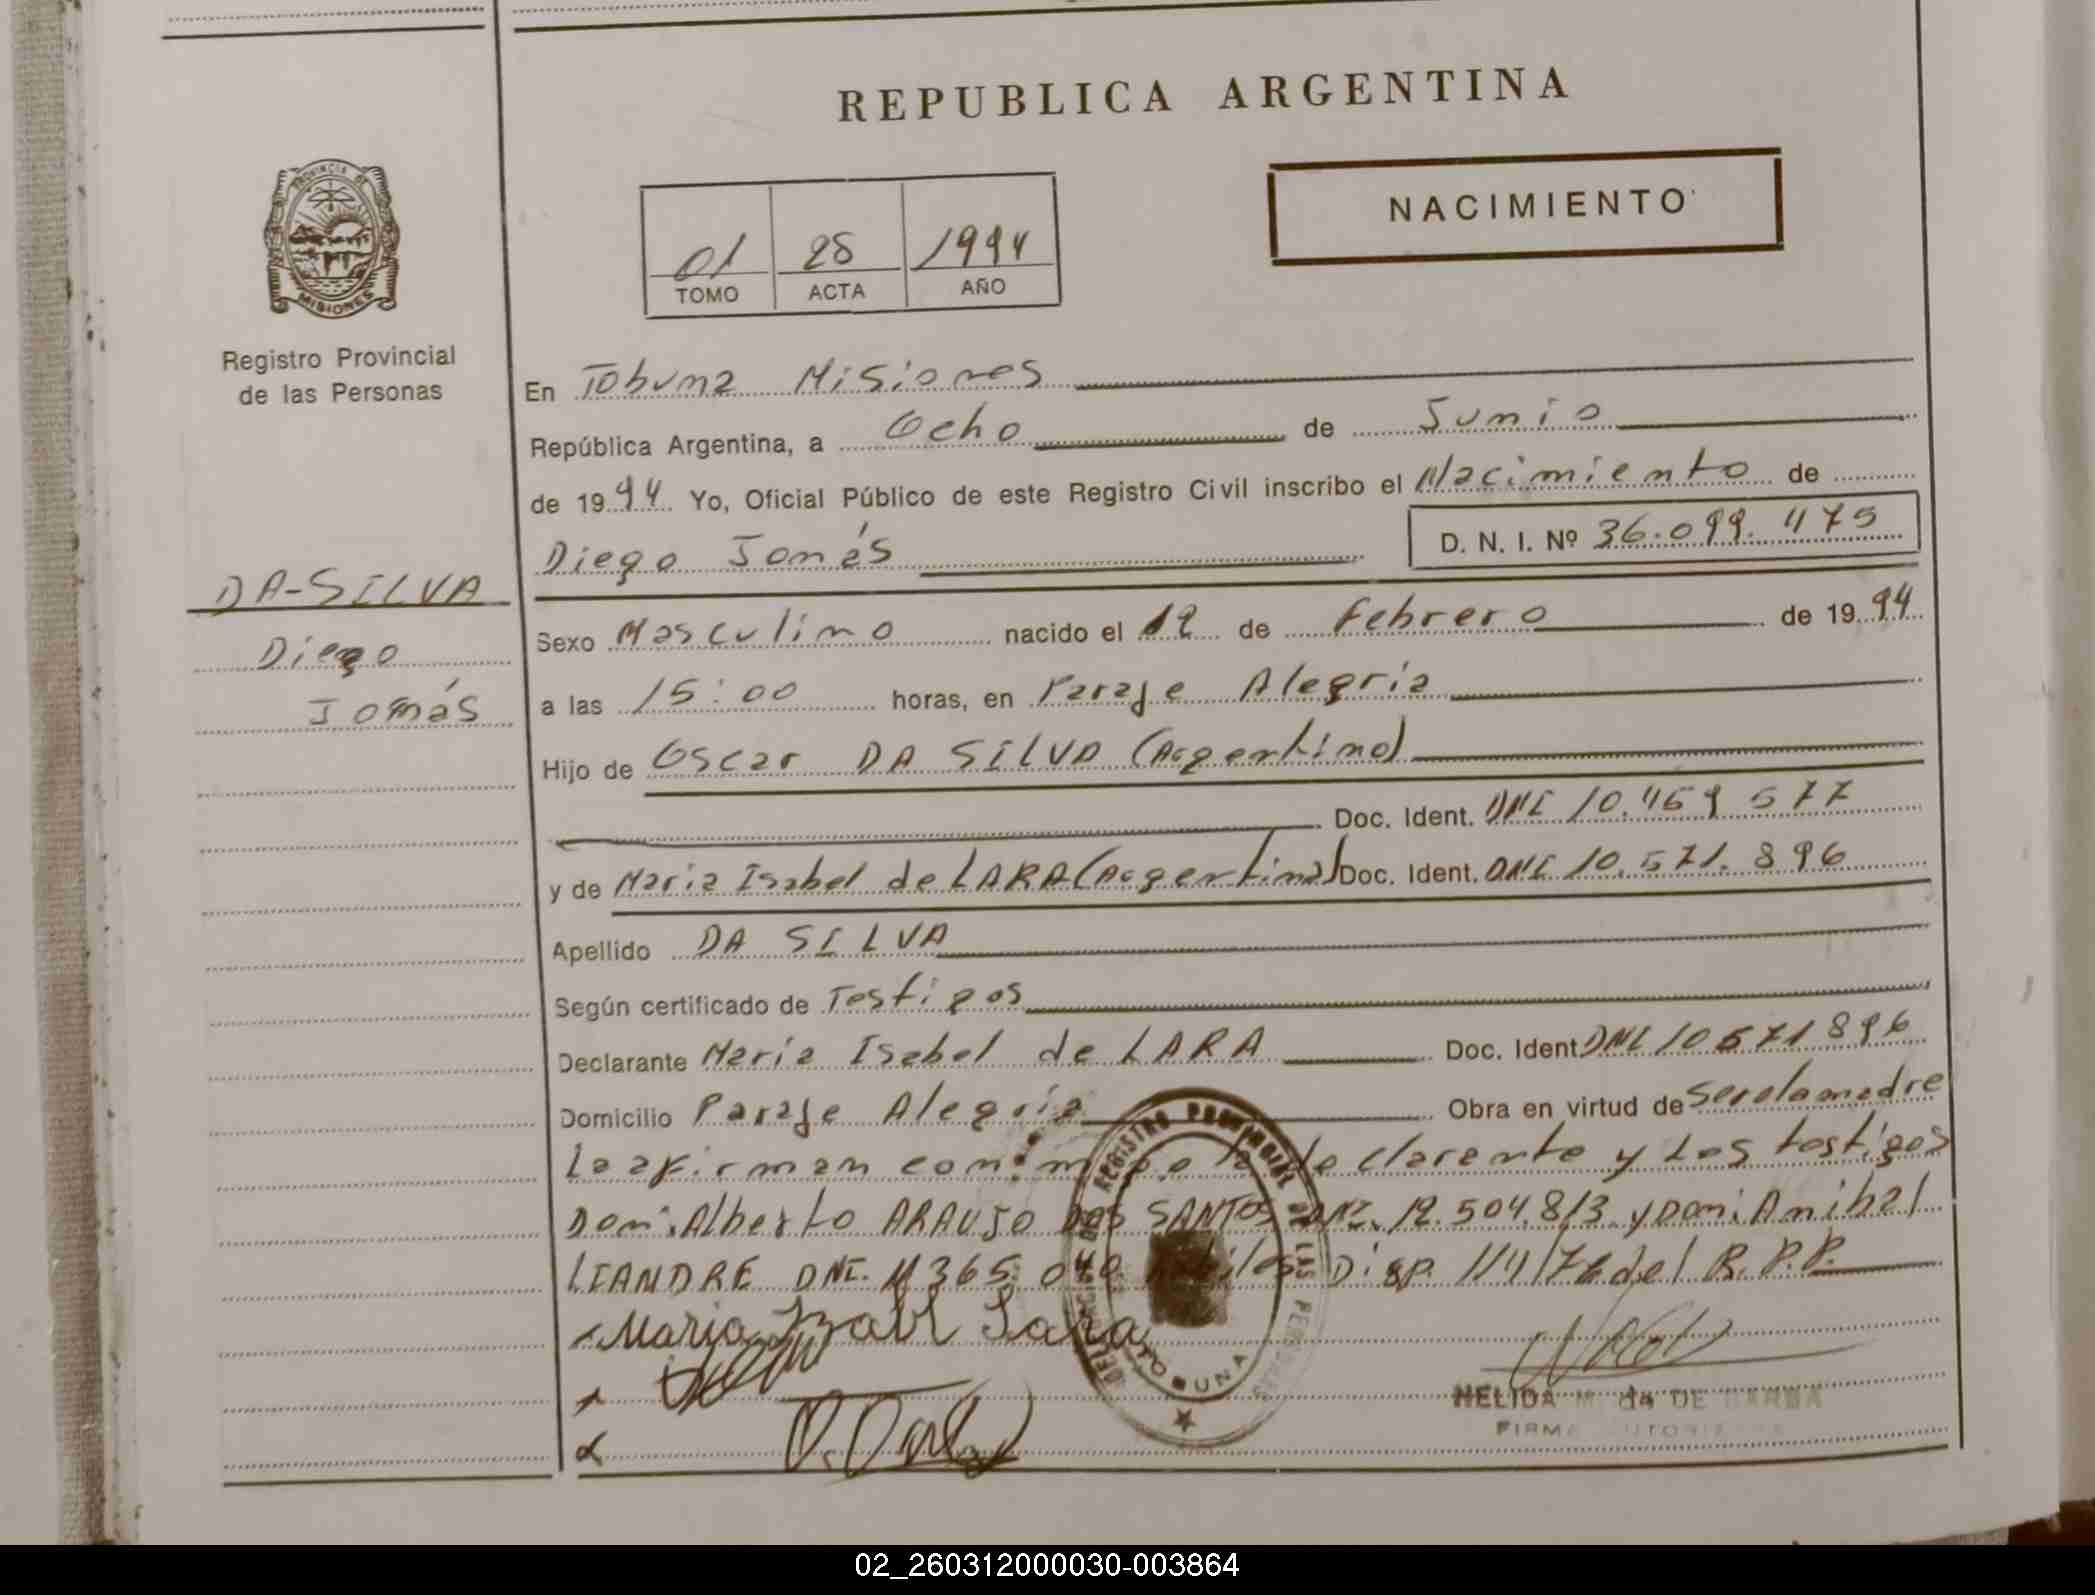 REPUBLICA ARGENTINA
PROVINCIA DE MISIONES
Registro Provincial
de las Personas
NACIMIENTO
01 28 1994
TOMO ACTA AÑO
En Tobuna Misiones
República Argentina, a Ocho de Junio
de 1994 Yo, Oficial Público de este Registro Civil inscribo el Nacimiento de
Diego Jomás D. N. I. Nº 36.099.475
DA-SILVA
Diego
Jomás
Sexo Masculino nacido el 12 de Febrero de 1994
a las 15:00 horas, en Paraje Alegría
Hijo de Oscar DA SILVA (Argentino)
Doc. Ident. DNI 10.469 577
y de Maria Isabel de LARA (Argentina) Doc. Ident. DNI 10.571.896
Apellido DA SILVA
Según certificado de Testigos
Declarante María Isabel de LARA Doc. Ident DNI 10571896
Domicilio Paraje Alegría Obra en virtud de Ser la madre
La firman conmigo la declarante y Los testigos
Don: Alberto ARAUJO DOS SANTOS DNI. 12.504.813 y Don: Anibal
LEANDRE DNI. 11365.040 Disp. 114/72 del R.P.P.
Maria Izabl Lara
REGISTRO PROVINCIAL DE LAS PERSONAS
TOBUNA
NELIDA M. DE BARBA
FIRMA AUTORIZADA
02_260312000030-003864